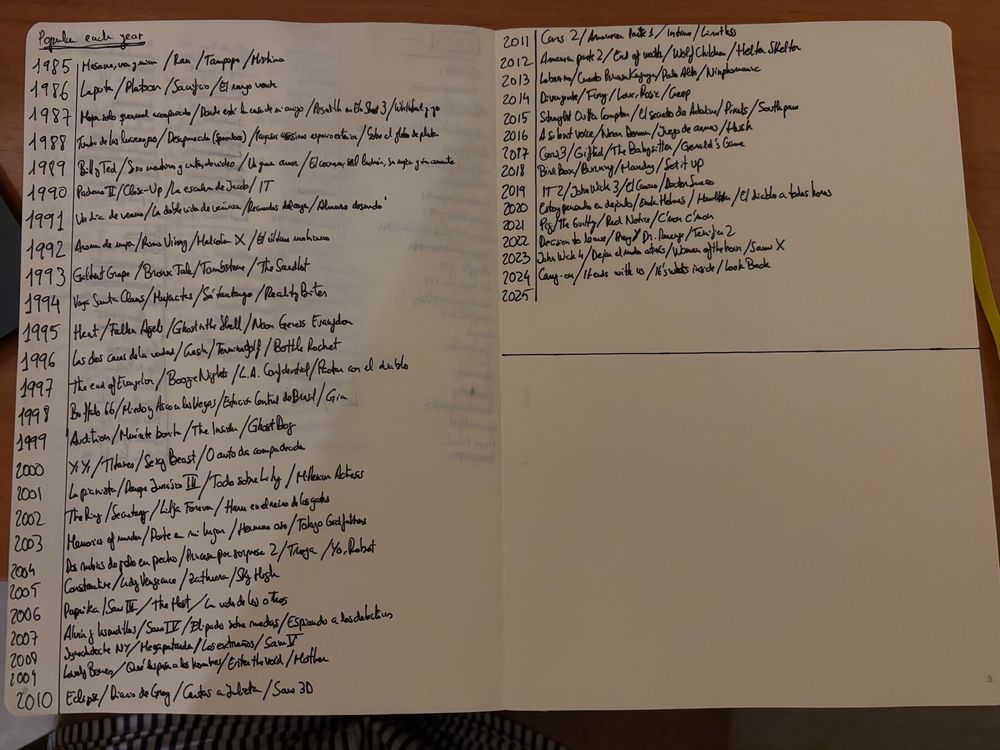 Popular each year
1985 Masacre, ven y mira / Ran / Tampopo / Mishima
1986 Laputa / Platoon / Sacrificio / El rayo verde
1987 Hope and / Dónde está la casa de mi amigo / Pesadilla en Elm Street 3 / Whitnail y yo
1988 Tumba de las luciérnagas / Desaparecida (Spoorloos) / Payasos asesinos espacio exterior / Sobre el globo de plata
1989 Bill y Ted / Sexo mentiras y cintas de video / Un gran amor / El cocinero, el ladrón, su mujer y su amante
1990 Padrino III / Close-Up / La escalera de Jacob / IT
1991 Un día de verano / La doble vida de verónica / Recuerdos del ayer / Almuerzo desnudo
1992 Aroma de mujer / Primo Vinny / Malcolm X / El último mohicano
1993 Gilbert Grape / Bronx Tale / Tombstone / The Sandlot
1994 Vaya Santa Claus / / Sátántangó / Reality Bites
1995 Heat / Fallen Angels / Ghost in the Shell / Neon Genesis Evangelion
1996 Las dos caras de la verdad / Crash / / Bottle Rocket
1997 The end of Evangelion / Boogie Nights / L.A. Confidential / Pactar con el diablo
1998 Buffalo 66 / Miedo y Asco a las Vegas / Estación Central do Brasil / Gia
1999 Audition / Muérete bonita / The Insider / Ghost Dog
2000 Yi Yi / Titanes / Sexy Beast / O auto da compadecida
2001 La pianista / Parque Jurásico III / Todo sobre Lily / Millenium Actress
2002 The Ring / Secretary / Lilja Forever / Haru en el reino de los gatos
2003 Memories of murder / Ponte en mi lugar / Hermano oso / Tokyo Godfathers
2004 Dos rubias de pelo en pecho / Princesa por sorpresa 2 / Troya / Yo, Robot
2005 Constantine / Lady Vengeance / Zathura / Sky High
2006 Paprika / Saw III / The Host / La vida de los otros
2007 Alvin y las ardillas / Saw IV / El piado sobre ruedas / Espiando a los detectives
2008 Synecdoche NY / Megapetarda / Los extraños / Saw V
2009 Lovely Bones / Qué les pasa a los hombres / Enter the void / Mother
2010 Eclipse / Diario de Greg / Cartas a Julieta / Saw 3D
2011 Cars 2 / Amanecer Parte 1 / Intime / Limitless
2012 Amanecer parte 2 / End of watch / Wolf Children / Helter Skelter
2013 Laberinto / Cuento Princesa Kaguya / Palo Alto / Ninphomaniac
2014 Divergente / Fury / Love, Rosie / Creep
2015 Straight Outta Compton / El secreto de Adaline / Pixels / Southpaw
2016 A silent voice / Neon Demon / Juego de armas / Hush
2017 Cars 3 / Gifted / The Babysitter / Gerald's Game
2018 Bird Box / Burning / Mandy / Set it up
2019 IT 2 / John Wick 3 / El Camino / Doctor Sueño
2020 Estoy pensando en dejarlo / Enola Holmes / Hamilton / El diablo a todas horas
2021 Pig / The Guilty / Red Notice / C'mon c'mon
2022 Decision to leave / Pearl / /
2023 John Wick 4 / Dejar el mundo atrás / Woman of the hour / Saw X
2024 Carry-on / It ends with us / It's what's inside / Look Back
2025
3